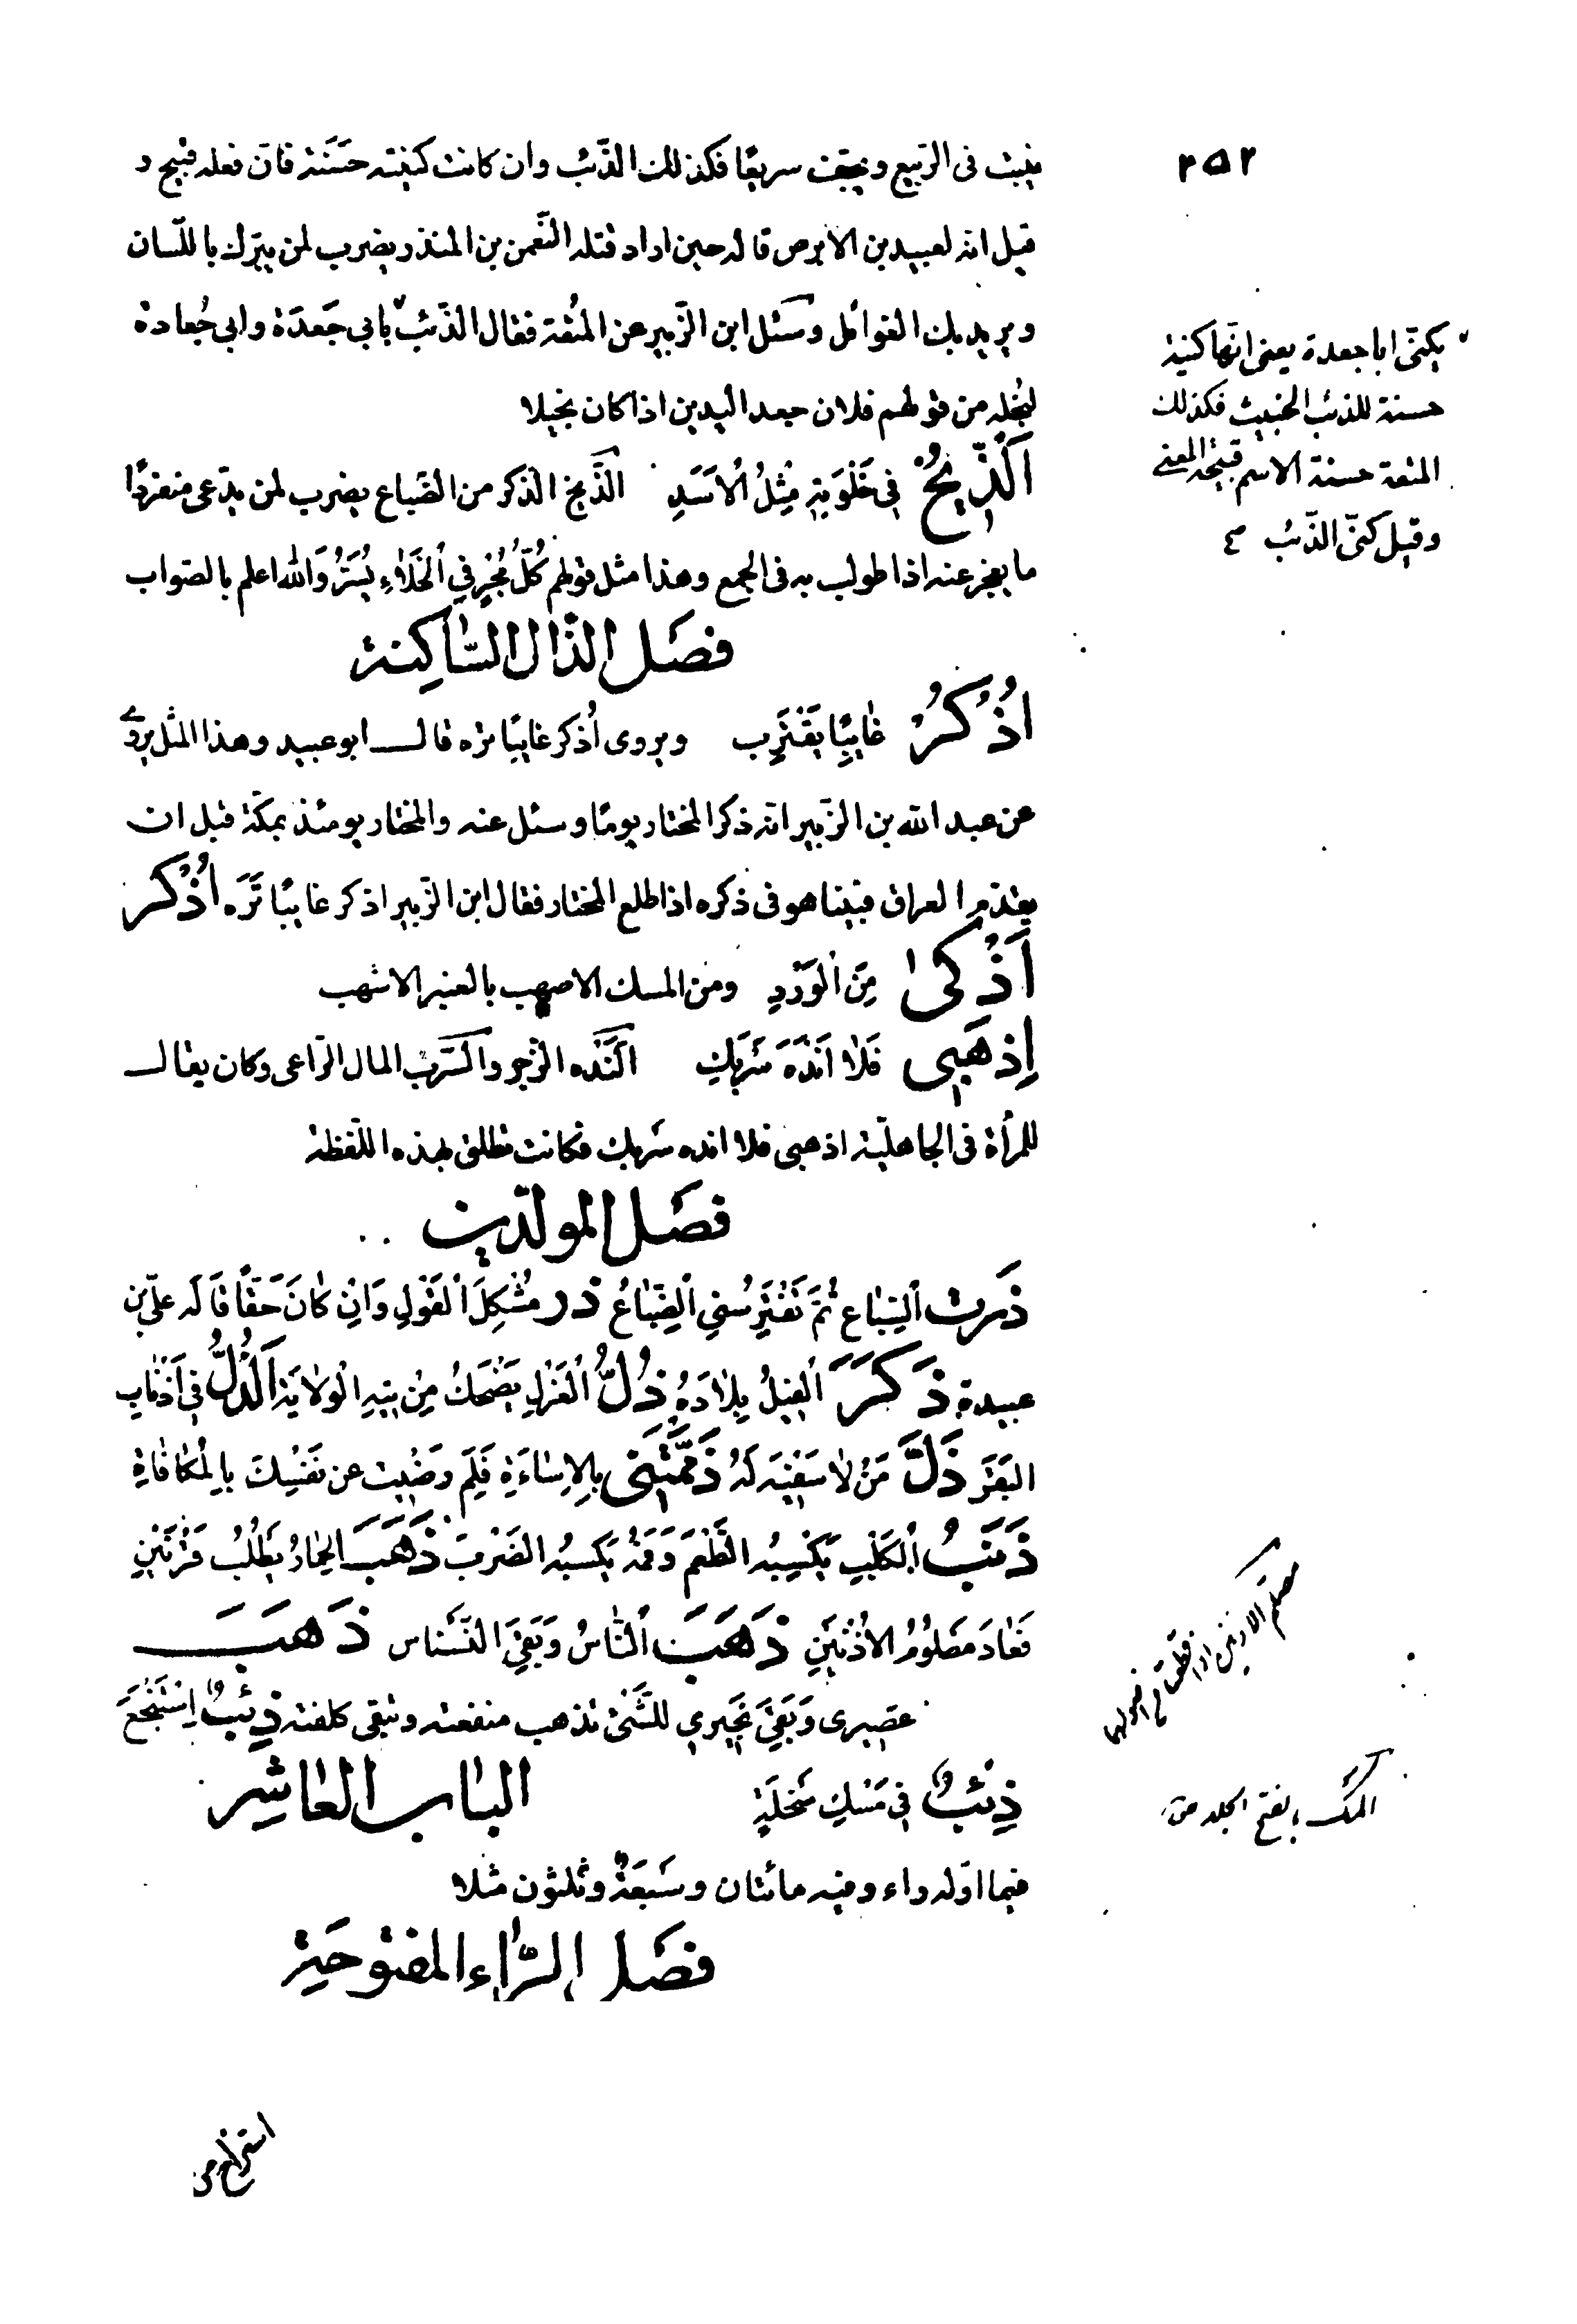 ٢٥٢
ينبت فى الرّبيع و يجفّ سريعًا فكذلك الذّئب وان كانت كنيته حَسَنَة فانّ فعله قبيح و
قيل انه لعبيد بن الابرص قاله حين اراد قتله النّعمن بن المنذر يضرب لمن يبرّك باللسان
ويريد بك الغوائل وسُئل ابن الزّبير عن المُتعة فقال الذّئبُ ٧ بابى جَعدَة وابى جُعادة
لبُخله من قولهم فلان جعد اليدين اذا كان بخيلا
اَلذِّيخُ فِى خَلْوَتِهِ مِثْلُ الْاَسَدِ الذّيخ الذكر من الضّباع يضرب لمن يدّعى منفردًا
ما يعجز عنه اذا طولب به فى الجمع وهذا مثل قولهم كُلُّ مُجْرٍ فِى الْخَلَاءِ يُسَرُّ وَالله اعلم بالصّواب
فصَل الذّال السّاكِنة
اُذْكُرْ غَائِبًا يَقْتَرِب ويروى اُذكر غائبًا تره قال ابو عبيد وهذا المثل يروى
عن عبد الله بن الزّبير انّه ذكر المختار يومًا وسئل عنه والمختار يومئذ بمكّة قبل ان
يقدم العراق فبينا هو فى ذكره اذا طلع المختار فقال ابن الزّبير اذكر غائبًا تَرَه اُذْكر
اَذْكىٰ مِنَ الْوَرْدِ ومن المسك الاصهب بالعنبر الاشهب
اِذهَبِى فَلَا اَنْدَهُ سَرْبَكِ النَّدْه الزّجر والسَّرب المال الرّاعى وكان يقال
للمرأة فى الجاهليّة اذهبى فلا انده سَربك فكانت تطلق بهذه اللّفظة
فصَل المولّدين
ذمرت السِّبَاع ثُمَّ تَفْتَرِسُنِى الضِّبَاعُ ذر مُشْكِلَ الْقَوْلِ وَاِنْ كَانَ حَقًّا قَالَه علىّ بن
عبيدة ذَكَرَ الفِيلُ بِلَادَهُ ذُلُّ الْعَزْلِ يَضْحَكُ مِنْ تِيهِ الْوِلَايَة اَلذُّلُّ فِى اَذْنَابِ
البَقَر ذَلَّ مَنْ لَا سَفِيهَ لَهُ ذَمَمْتَنِى بِالْاِسَاءَةِ فَلِمَ رَضِيت عن نَفْسِكَ بِالْمُكَافَاةِ
ذَنَبُ الكَلْبِ يَكْسِبُه الطُّعْمَ وَفَمُهُ يَكسبُه الضَرْبَ ذَهَبَ الحِمَارُ يَطْلُبُ قَرْنَيْنِ
فَعَادَ مَصْلُومُ الاُذُنَيْنِ ذَهَبَ النَّاسُ وَبَقِىَ النَّسْنَاس ذَهَبَ
عَصِيرى وَبَقِىَ ثَجِيرِى للشَّىْ تذهب منفعته وتبقى كلفته ذِئبٌ اِسْتَنْعَجَ
ذِئبٌ فى مَسْكِ سَخْلَةٍ البَاب العَاشِر
فيما اوّله راء وفيه مائتان وسَبعَةٌ وثلثون مثلا
فصَل الرّاء المفتوحَة
٧ يكنىّ ابا جعدة يعنى انّها كنية
حسنة للذئب الخبيث فكذلك
المتعة حسنة الاسم قبيحة المعنى
وقيل كنىّ الذّئب
مصلم الاذنين اذا قطعتا من اصولها
المسك بفتح الجلد